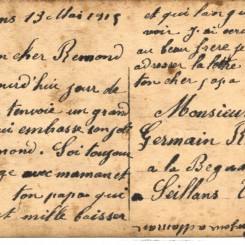 ns 13 Mai 1915
n cher Remond
urd'hui jour de
t'envoie un grand
qui embrasse son joli
mond. Soi toujour
ge avec maman et
ton papa qui
et mille baisser
et qui langui
voir J'ai
au beau frere
adresser la lettre
ton cher papa
Monsieur
Germain R
a la Begu
a Seillans